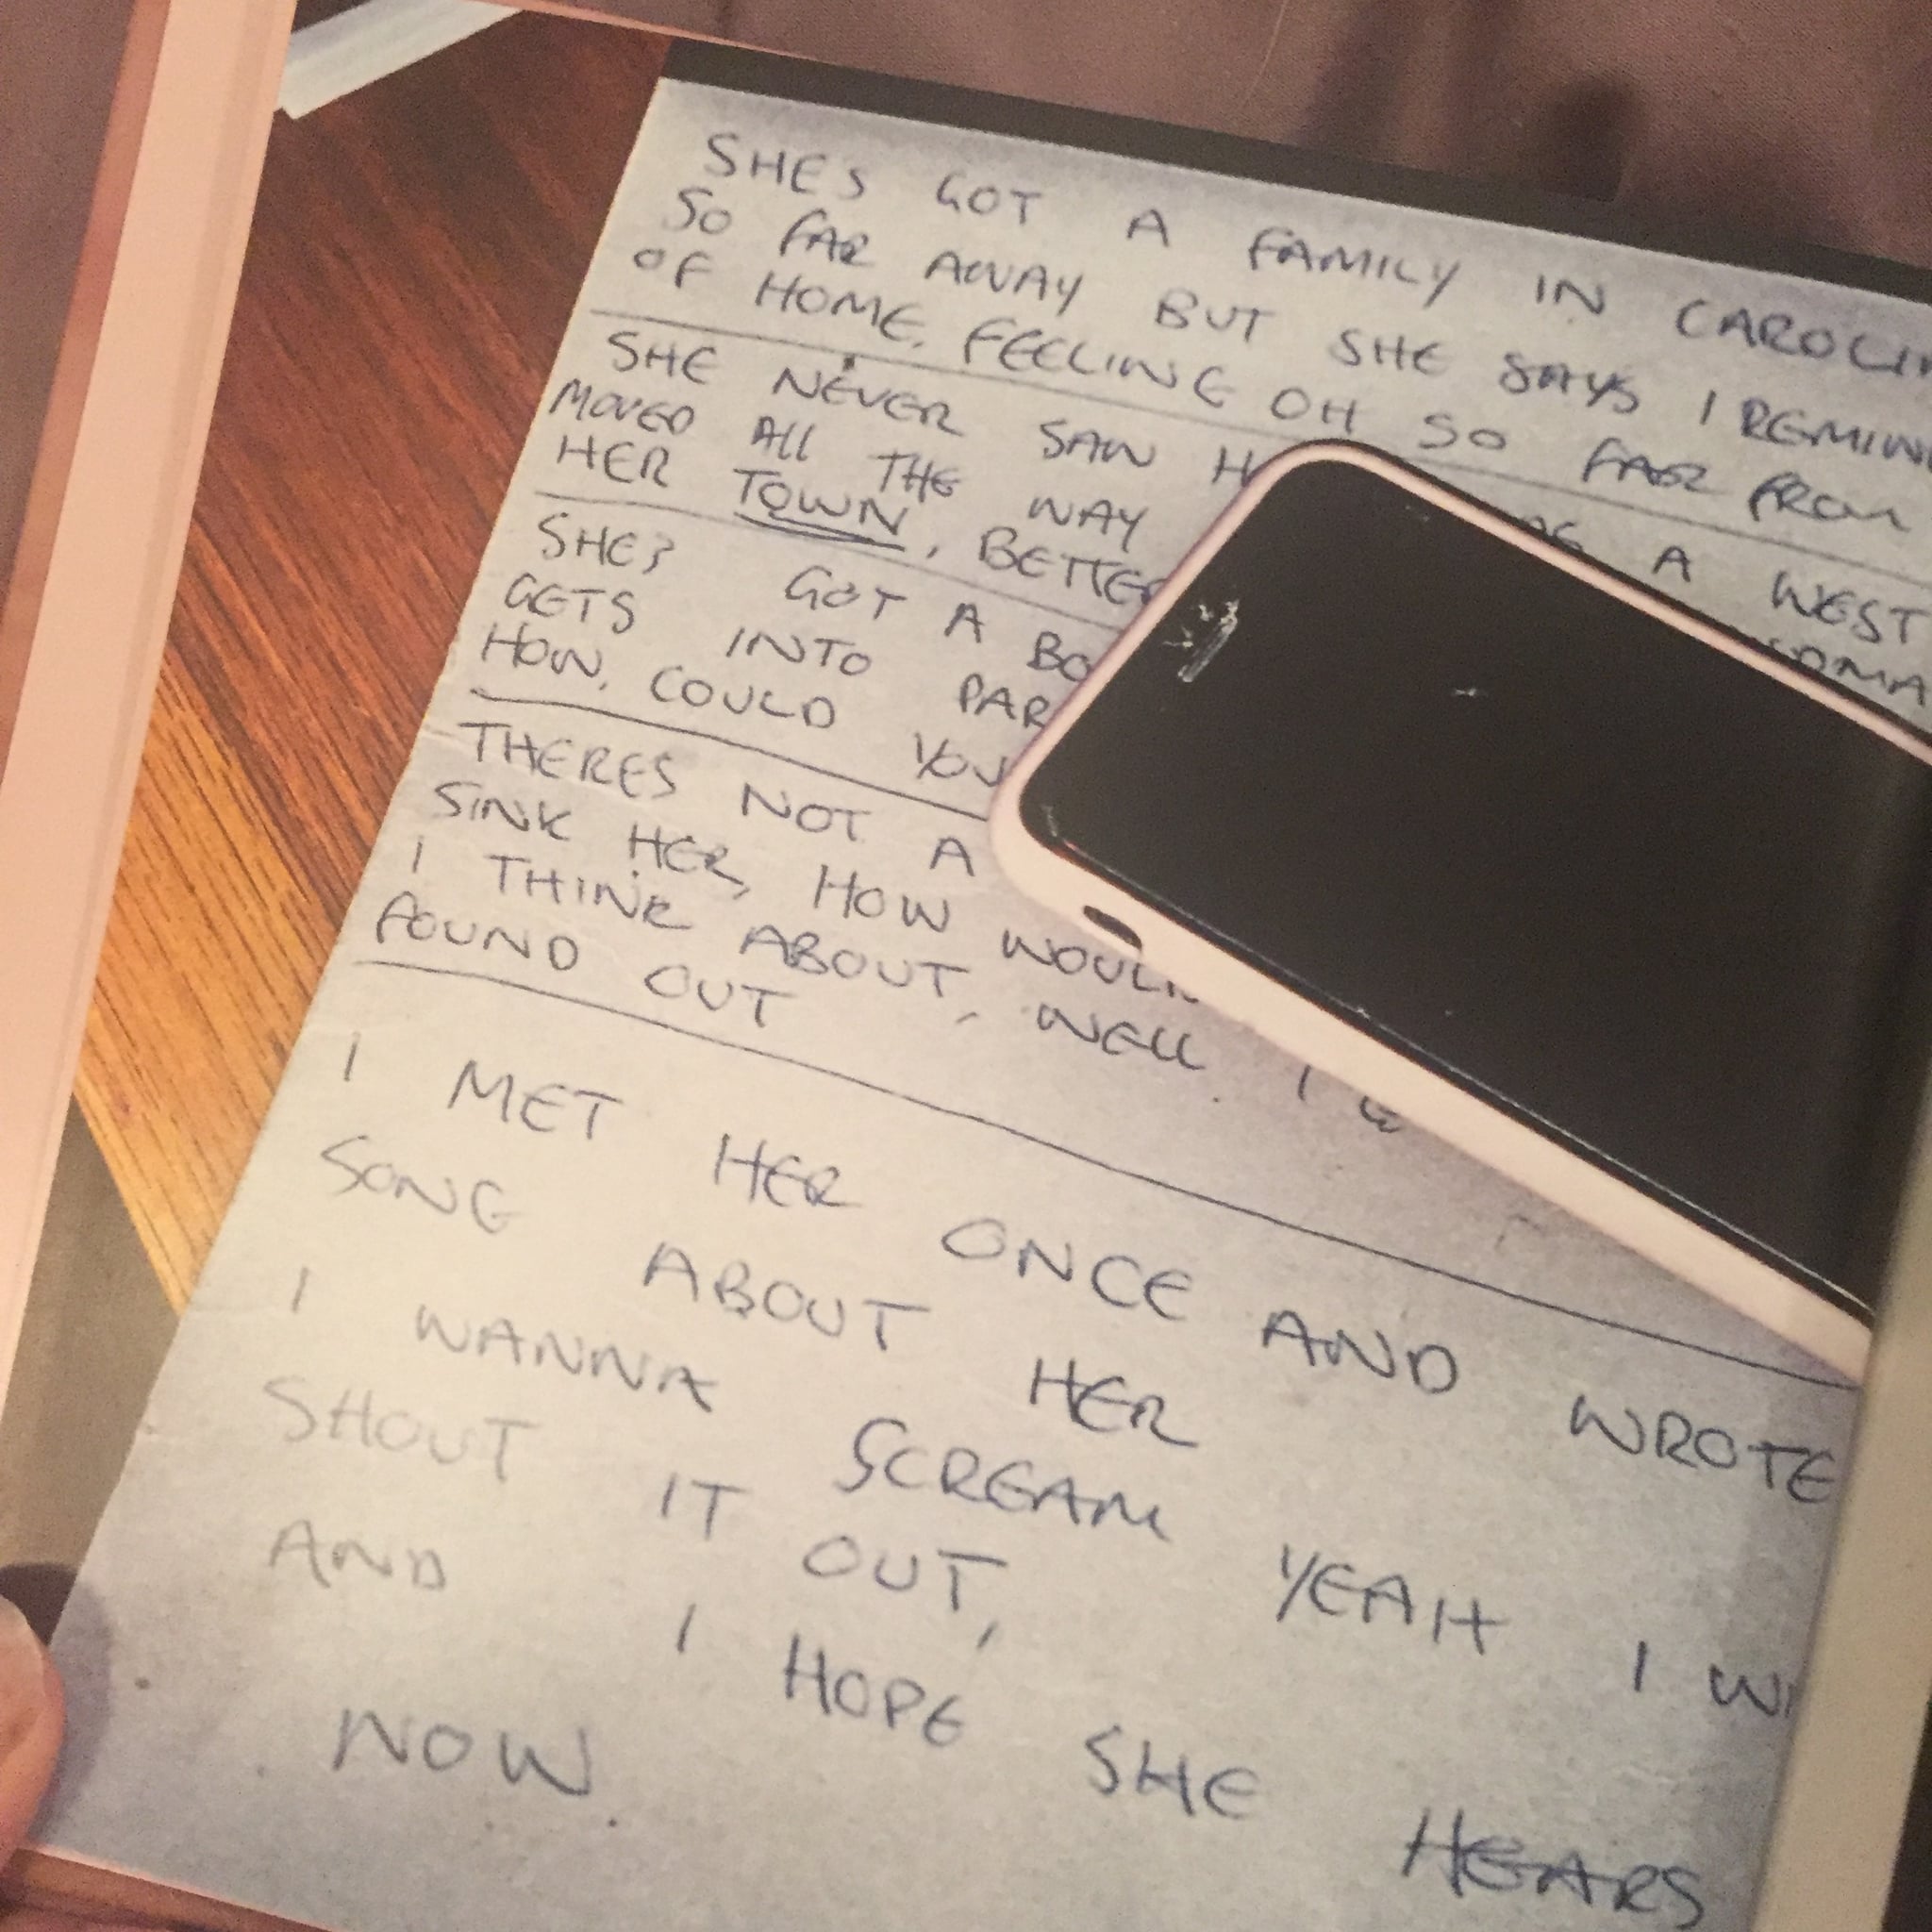 SHES GOT A FAMILY IN
SO FAR AWAY BUT SHE SAYS I
OF HOME, FEELING OH SO FAR FROM
SHE NEVER SAW A WEST
MOVED ALL THE WAY
HER TOWN, BETTER
SHES GOT A
GETS INTO
HOW, COULD YOU
THERES NOT A
SINK HER, HOW
I THINK ABOUT, WELL I
FOUND OUT
I MET HER ONCE AND WROTE
SONG ABOUT HER
I WANNA SCREAM YEAH I
SHOUT IT OUT,
AND I HOPE SHE HEARS
NOW.